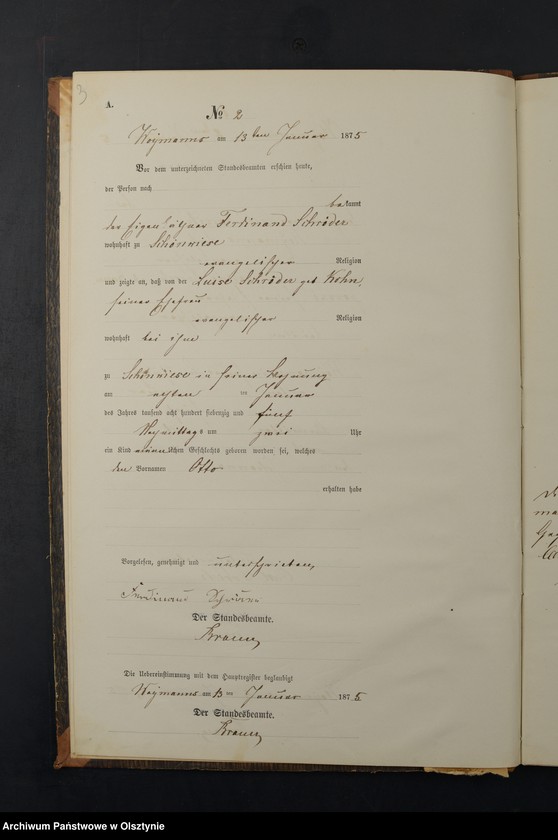 3
A.
No 2
Weymanns am 13 ten Januar 1875
Vor dem unterzeichneten Standesbeamten erschien heute,
der Person nach
bekannt
der Eigenkäthner Ferdinand Schröder
wohnhaft zu Schönwiese
evangelischer Religion
und zeigte an, daß von der Luise Schröder geb Kohn,
seiner Ehefrau
evangelischer Religion
wohnhaft bei ihm
zu Schönwiese in seiner Wohnung
am achten ten Januar
des Jahres tausend acht hundert siebenzig und fünf
Nachmittags um zwei Uhr
ein Kind männlichen Geschlechts geboren worden sei, welches
den Vornamen Otto
erhalten habe
Vorgelesen, genehmigt und unterschrieben,
Ferdinand
Der Standesbeamte.
Die Uebereinstimmung mit dem Hauptregister beglaubigt
Weymanns am 13 ten Januar 1875
Der Standesbeamte.
Archiwum Państwowe w Olsztynie